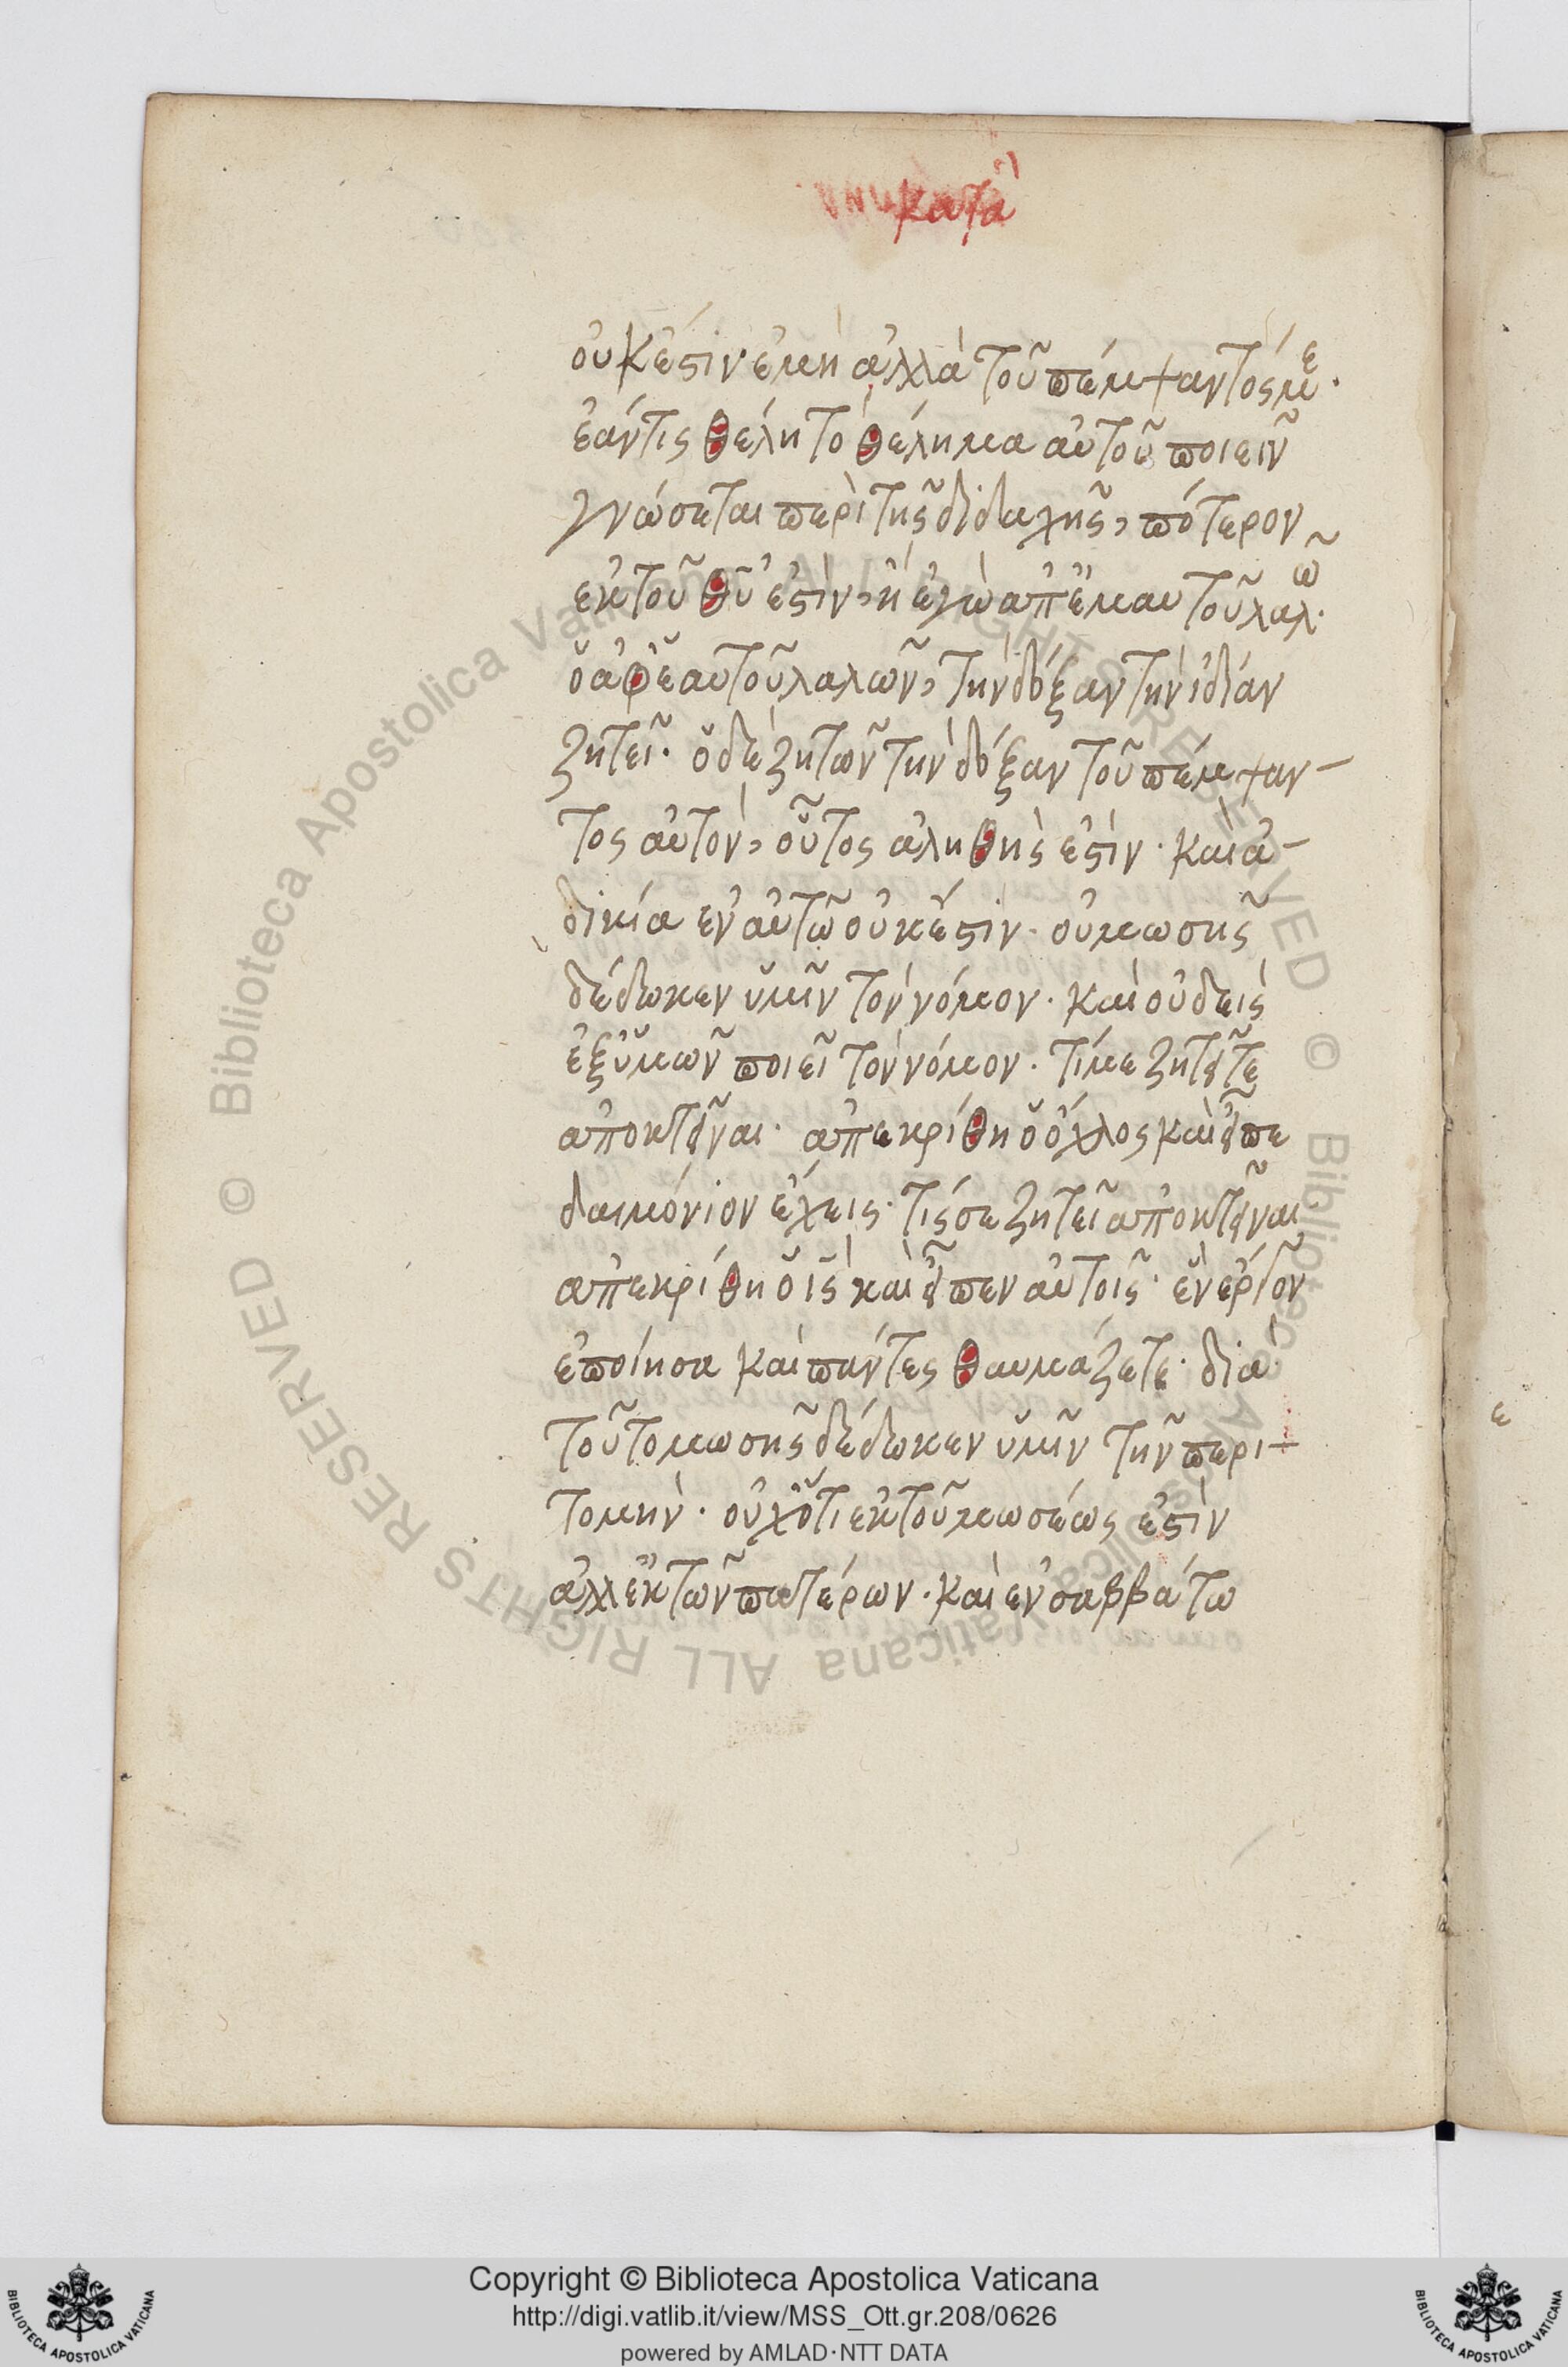 κατὰ
οὐκ ἔστιν ἐμὴ ἀλλὰ τοῦ πέμψαντός με·
ἐάν τις θέλη τὸ θέλημα αὐτοῦ ποιεῖν
γνώσεται περὶ τῆς διδαχῆς, πότερον
ἐκ τοῦ θῦ ἐστὶν, ἢ ἐγὼ ἀπ ἐμαυτοῦ λαλῶ·
ὁ ἀφ ἑαυτοῦ λαλῶν, τὴν δόξαν τὴν ἰδίαν
ζητεῖ· ὁ δὲ ζητῶν τὴν δόξαν τοῦ πέμψαν-
τος αὐτὸν, οὗτος ἀληθὴς ἐστὶν· καὶ ἀ-
δικία ἐν αὐτῶ οὐκ ἔστιν· οὐ μωσῆς
δέδωκεν ὑμῖν τὸν νόμον· καὶ οὐδεὶς
ἐξ ὑμῶν ποιεῖ τὸν νόμον· τί με ζητεῖτε
ἀποκτεῖναι· ἀπεκρίθη ὁ ὄχλος καὶ εἶπε
δαιμόνιον ἔχεις· τίς σε ζητεῖ ἀποκτεῖναι
ἀπεκρίθη ὁ ις καὶ εἶπεν αὐτοῖς· ἓν ἔργον
ἐποίησα καὶ πάντες θαυμάζετε· διὰ
τοῦτο μωσῆς δέδωκεν ὑμῖν τῆν περι-
τομὴν· οὐχ ὅτι ἐκ τοῦ μωσέως ἐστὶν
ἀλλ ἐκ τῶν πατέρων· καὶ ἐν σαββάτω
ε
Copyright © Biblioteca Apostolica Vaticana
http://digi.vatlib.it/view/MSS_Ott.gr.208/0626
powered by AMLAD·NTT DATA
BIBLIOTECA APOSTOLICA VATICANA
BIBLIOTECA APOSTOLICA VATICANA
© Biblioteca Apostolica Vaticana ALL RIGHTS RESERVED © Biblioteca Apostolica Vaticana ALL RIGHTS RESERVED